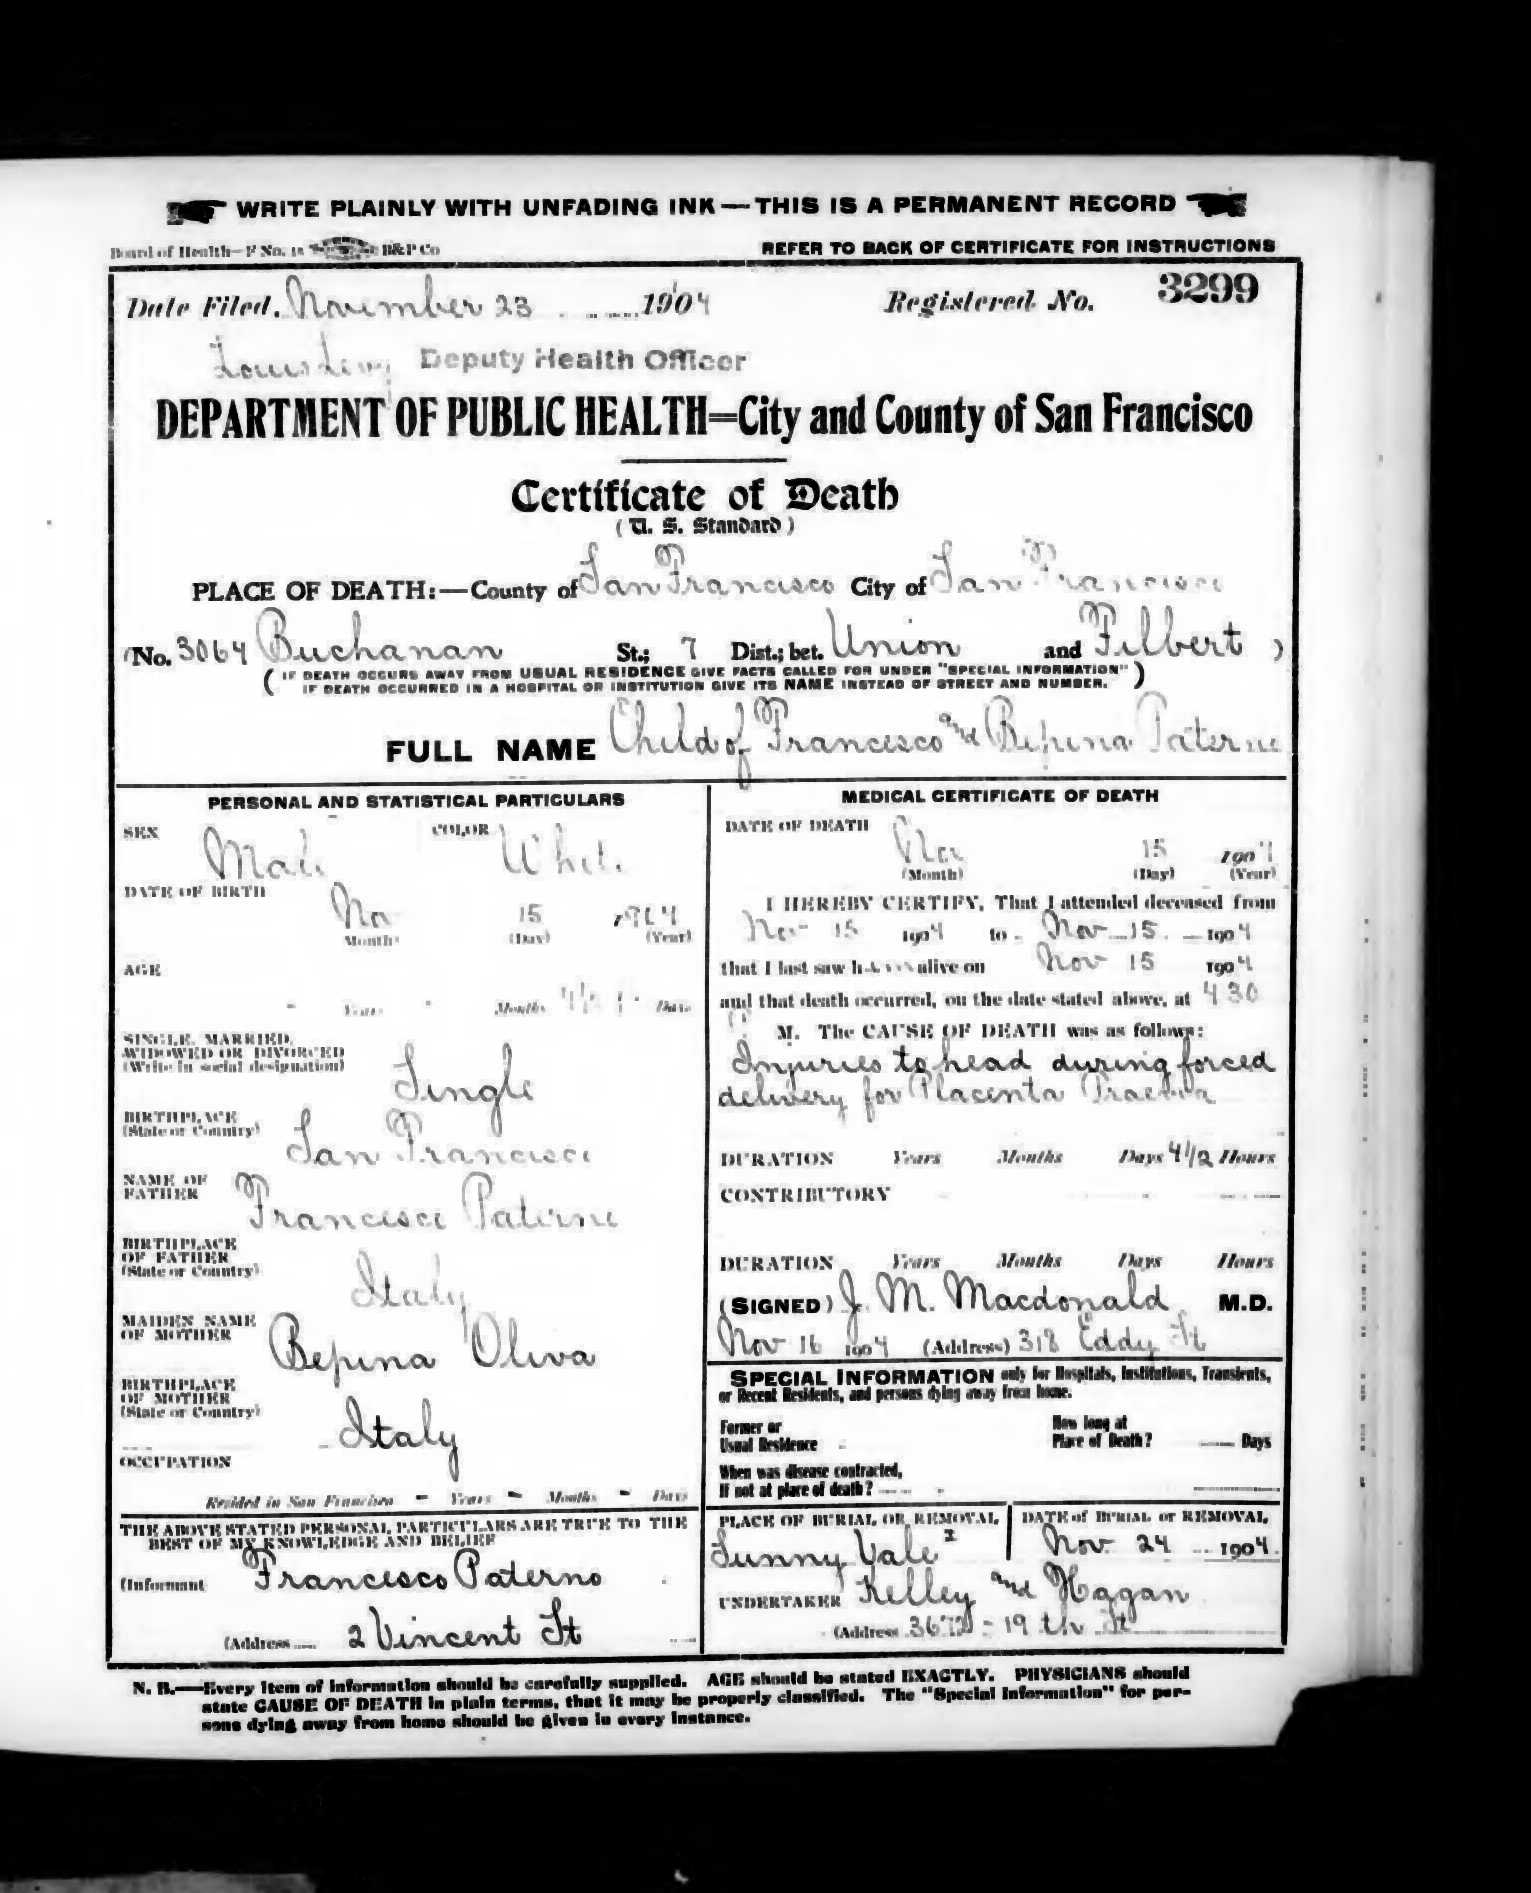 WRITE PLAINLY WITH UNFADING INK — THIS IS A PERMANENT RECORD
Board of Health—F No. 15 B&P Co
REFER TO BACK OF CERTIFICATE FOR INSTRUCTIONS
Date Filed. November 23 1904 Registered No. 3299
Louis Levy Deputy Health Officer
DEPARTMENT OF PUBLIC HEALTH=City and County of San Francisco
Certificate of Death
(U. S. Standard)
PLACE OF DEATH:—County of San Francisco City of San Francisco
(No. 3064 Buchanan St.; 7 Dist.; bet. Union and Filbert )
( IF DEATH OCCURS AWAY FROM USUAL RESIDENCE GIVE FACTS CALLED FOR UNDER "SPECIAL INFORMATION" )
( IF DEATH OCCURRED IN A HOSPITAL OR INSTITUTION GIVE ITS NAME INSTEAD OF STREET AND NUMBER. )
FULL NAME Child of Francisco and Bepina Paterno
PERSONAL AND STATISTICAL PARTICULARS
SEX Male COLOR White
DATE OF BIRTH Nov 15 1904
Month) (Day) (Year)
AGE
Years Months 4½ Days
SINGLE, MARRIED,
WIDOWED OR DIVORCED
(Write in social designation)
Single
BIRTHPLACE
(State or Country)
San Francisco
NAME OF
FATHER
Francisco Paterno
BIRTHPLACE
OF FATHER
(State or Country)
Italy
MAIDEN NAME
OF MOTHER
Bepina Oliva
BIRTHPLACE
OF MOTHER
(State or Country)
Italy
OCCUPATION
Resided in San Francisco - Years - Months - Days
THE ABOVE STATED PERSONAL PARTICULARS ARE TRUE TO THE
BEST OF MY KNOWLEDGE AND BELIEF
(Informant Francisco Paterno
(Address 2 Vincent St
MEDICAL CERTIFICATE OF DEATH
DATE OF DEATH
Nov 15 1904
(Month) (Day) (Year)
I HEREBY CERTIFY, That I attended deceased from
Nov 15 1904 to Nov 15 1904
that I last saw h alive on Nov 15 1904
and that death occurred, on the date stated above, at 4 30
P M. The CAUSE OF DEATH was as follows:
Injuries to head during forced
delivery for Placenta Praevia
DURATION Years Months Days 4 1/2 Hours
CONTRIBUTORY
DURATION Years Months Days Hours
(SIGNED) J. M. Macdonald M.D.
Nov 16 1904 (Address) 318 Eddy St
SPECIAL INFORMATION only for Hospitals, Institutions, Transients,
or Recent Residents, and persons dying away from home.
Former or
Usual Residence
How long at
Place of Death? Days
When was disease contracted,
If not at place of death?
PLACE OF BURIAL OR REMOVAL
Sunny Vale
DATE of BURIAL or REMOVAL
Nov. 24 1904
UNDERTAKER Kelley and Hagan
(Address 3672 - 19 th St
N. B.—Every item of information should be carefully supplied. AGE should be stated EXACTLY. PHYSICIANS should
state CAUSE OF DEATH in plain terms, that it may be properly classified. The "Special Information" for per-
sons dying away from home should be given in every instance.